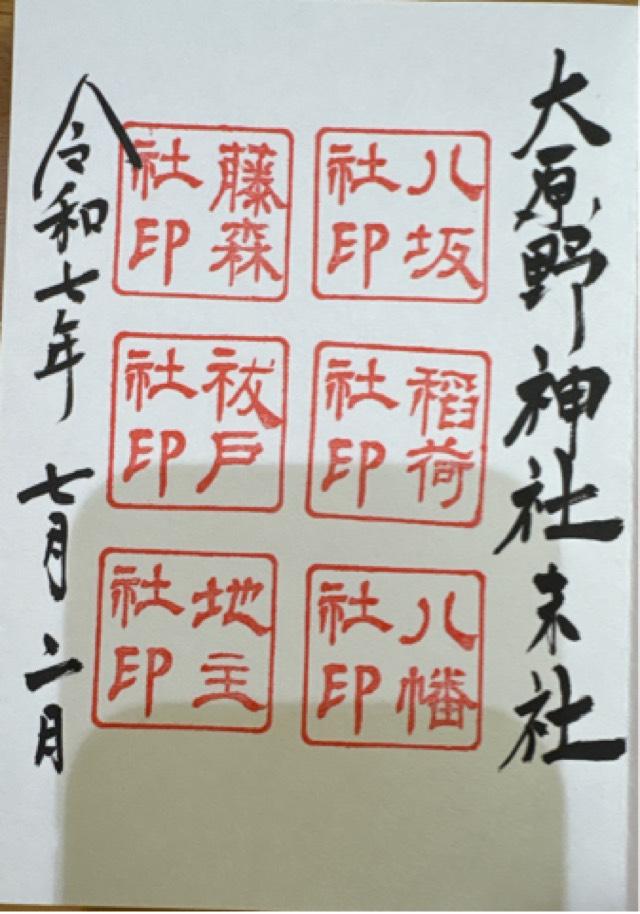 大原野神社末社
八坂
社印
稲荷
社印
八幡
社印
藤森
社印
祓戸
社印
地主
社印
令和七年 七月 二日